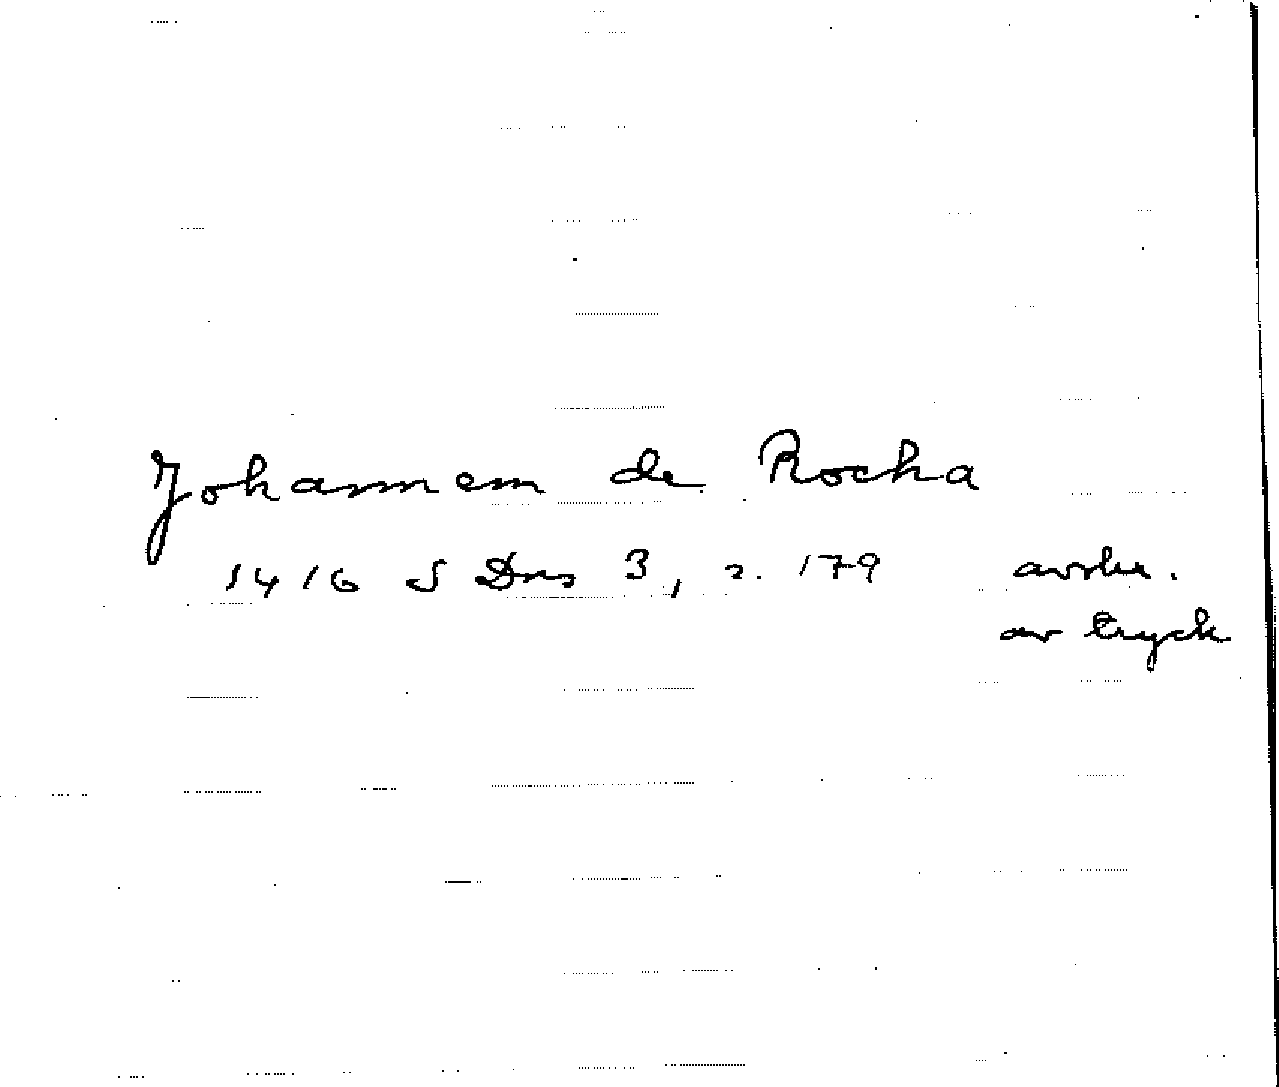 Johannem de Rocha
1416 S Dns 3, s. 179 avskr.
av tryck